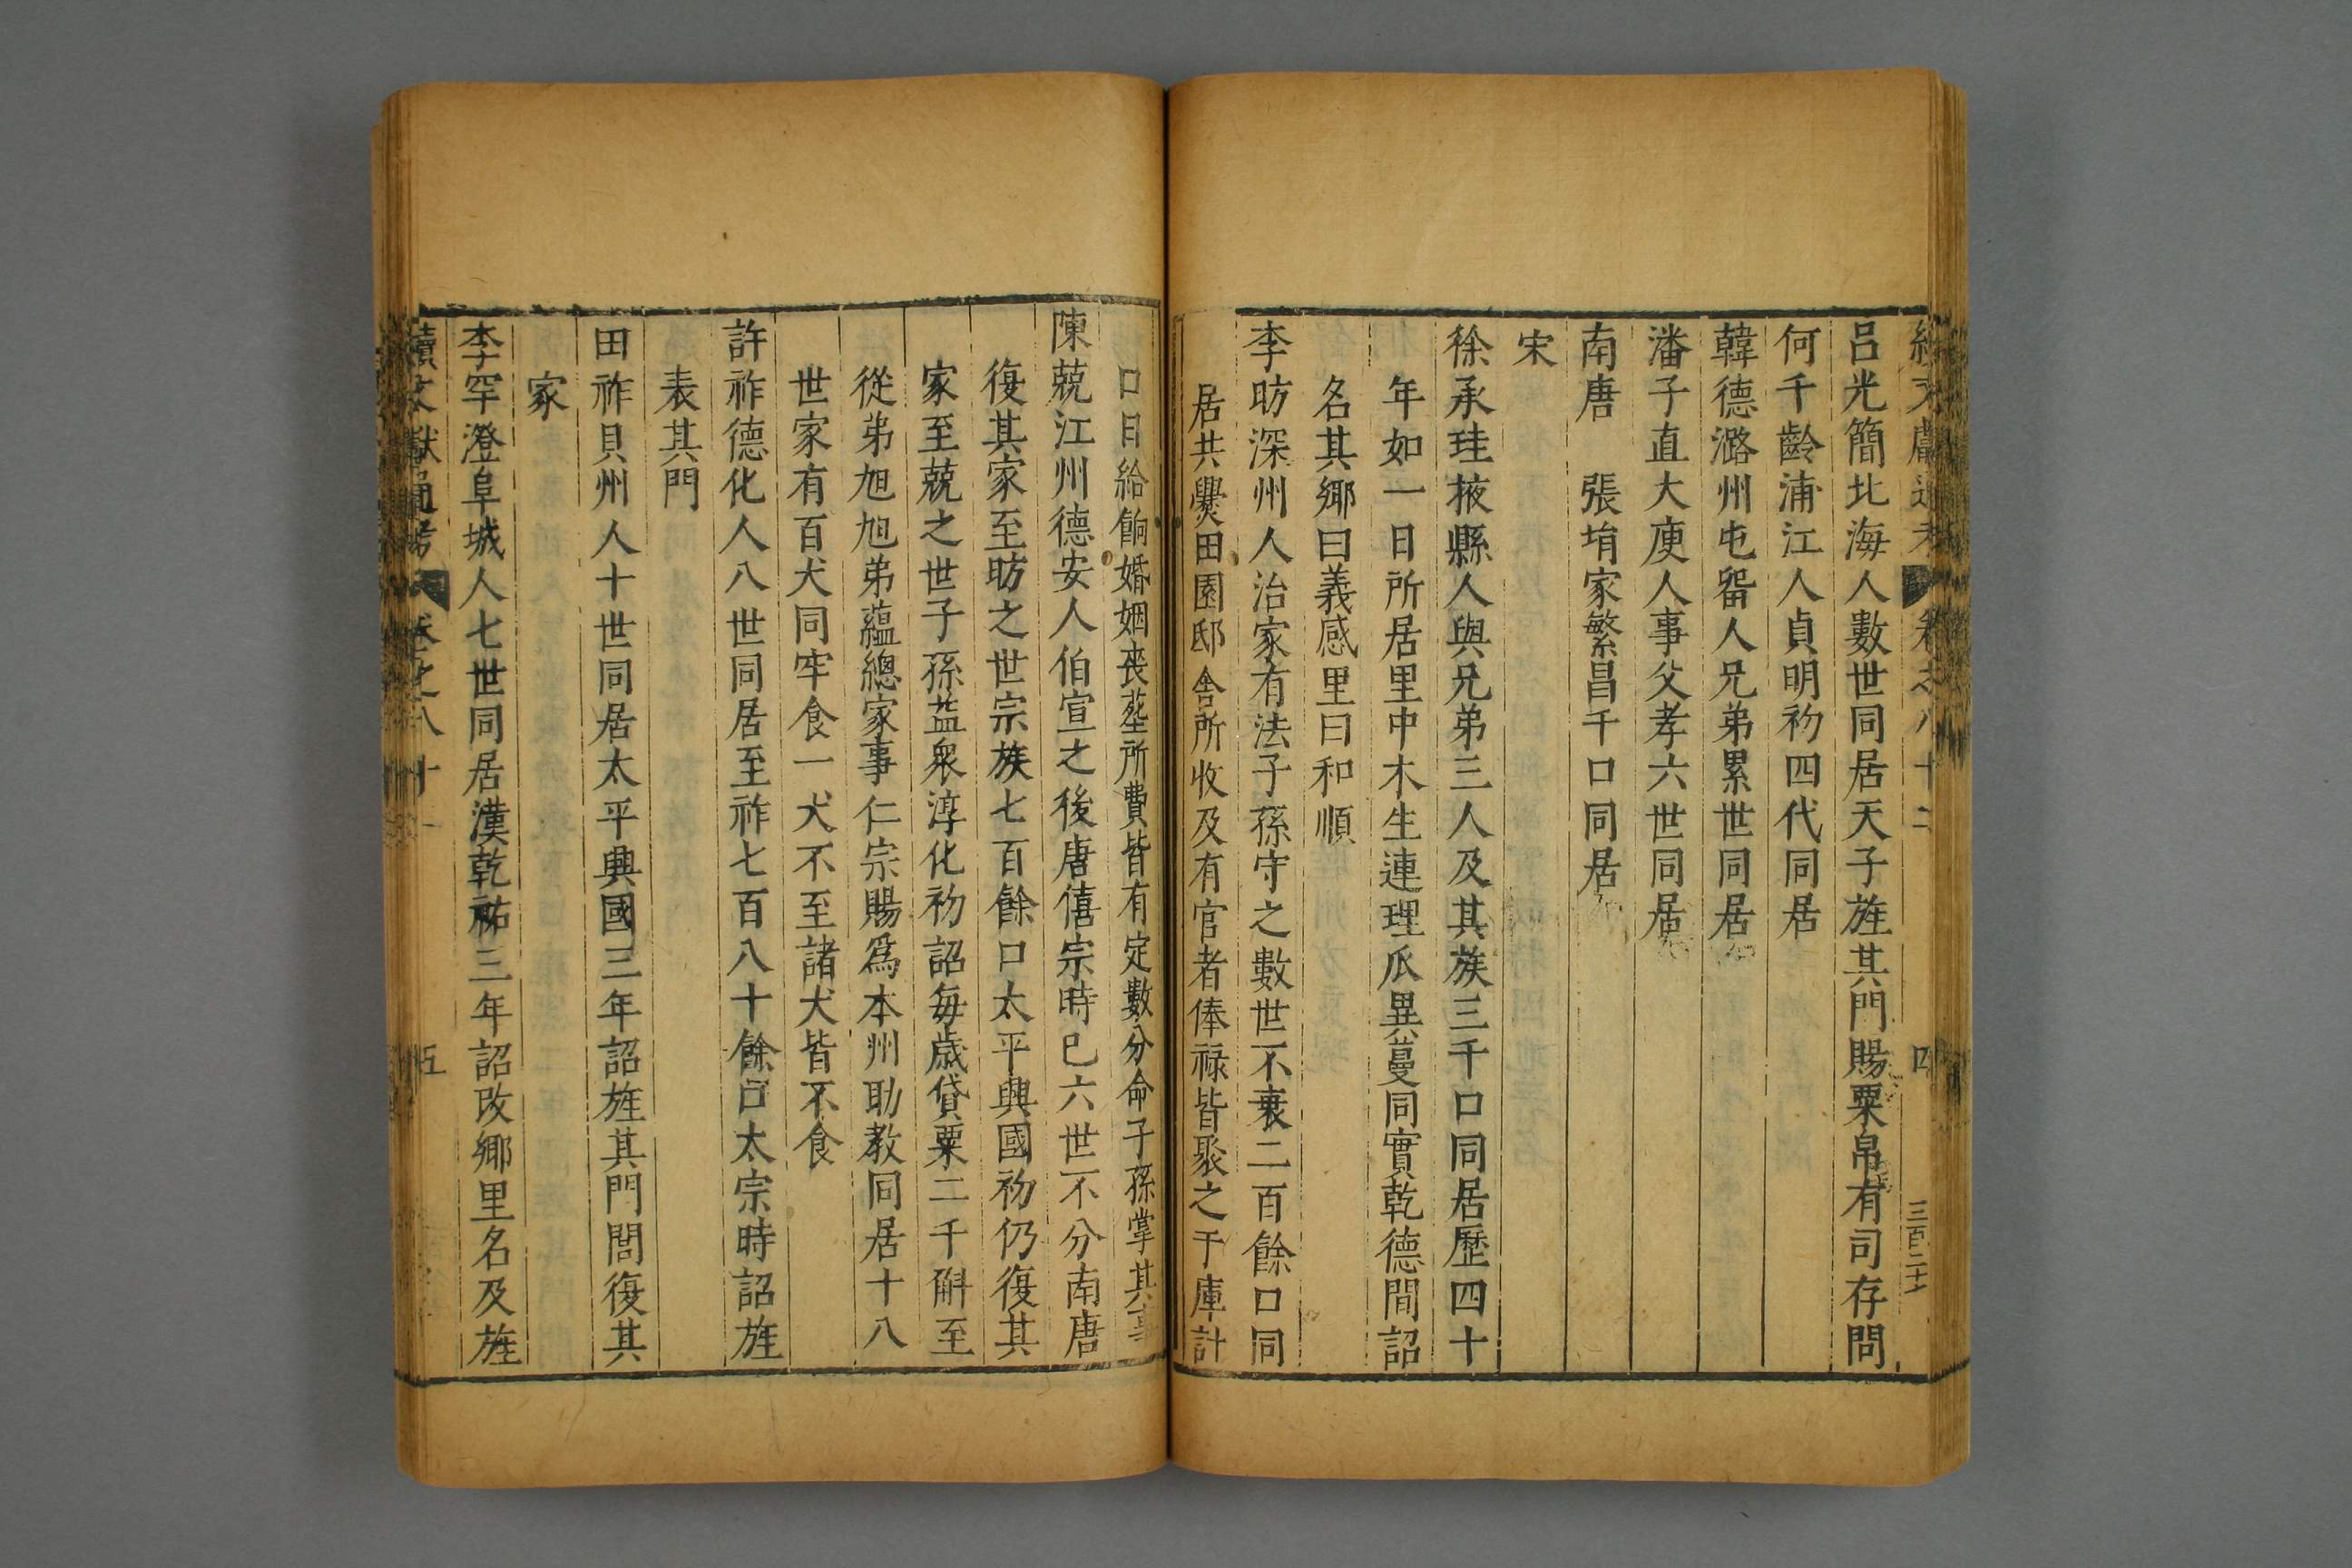 續文獻通考 卷之八十二 四 三百二十七
呂光簡北海人數世同居天子旌其門賜粟帛有司存問
何千齡浦江人貞明初四代同居
韓德潞州屯留人兄弟累世同居
潘子直大庾人事父孝六世同居
南唐 張堉家繁昌千口同居
宋
徐承珪掖縣人與兄弟三人及其族三千口同居歷四十
年如一日所居里中木生連理瓜異蔓同實乾德間詔
名其鄉曰義感里曰和順
李昉深州人治家有法子孫守之數世不衰二百餘口同
居共爨田園邸舍所收及有官者俸祿皆聚之于庫計
口日給餉婚姻喪塟所費皆有定數分命子孫掌其事
陳兢江州德安人伯宣之後唐僖宗時已六世不分南唐
復其家至昉之世宗族七百餘口太平興國初仍復其
家至兢之世子孫益衆淳化初詔每歲貸粟二千斛至
從弟旭旭弟蘊總家事仁宗賜爲本州助教同居十八
世家有百犬同牢食一犬不至諸犬皆不食
許祚德化人八世同居至祚七百八十餘口太宗時詔旌
表其門
田祚貝州人十世同居太平興國三年詔旌其門閭復其
家
李罕澄阜城人七世同居漢乾祐三年詔改鄉里名及旌
續文獻通考 卷之八十 五